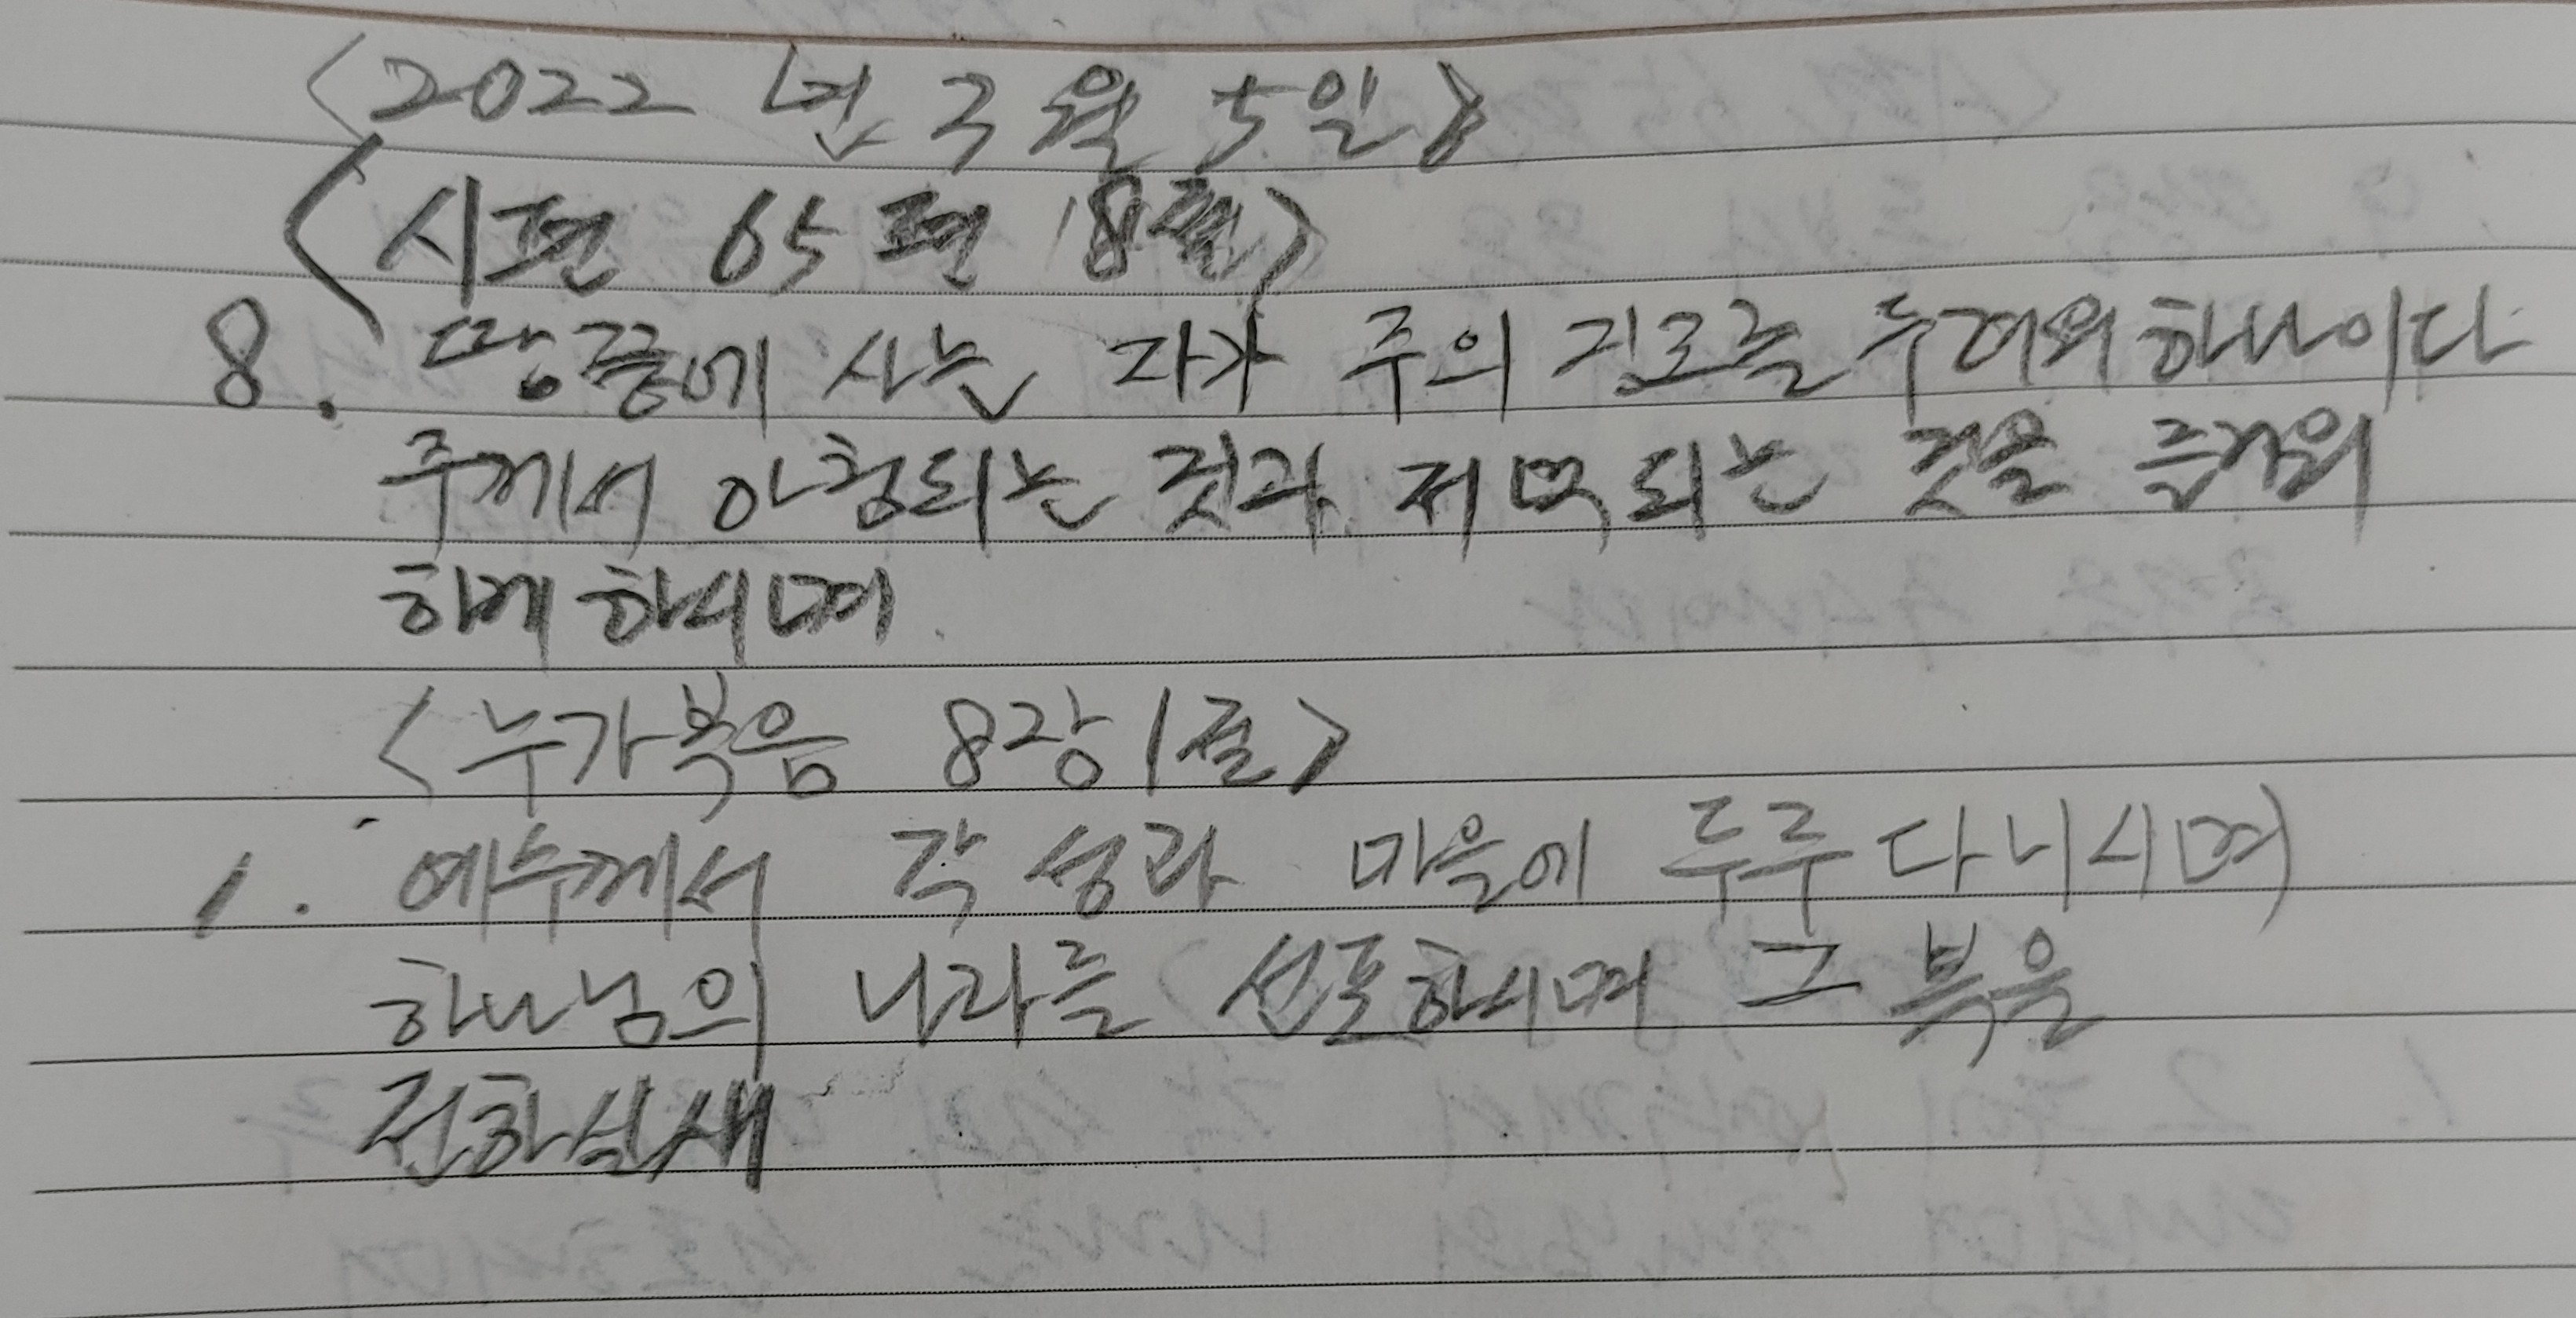 <2022년 3월 5일>
<시편 65편 8절>
8. 땅중에 사는 자가 주의 징조를 두려워하나이다
주께서 아침되는 것과 저녁되는 것을 즐거워
하게 하시며
<누가복음 8장 1절>
1. 예수께서 각 성과 마을에 두루 다니시며
하나님의 나라를 선포하시며 그 복음
전하실새